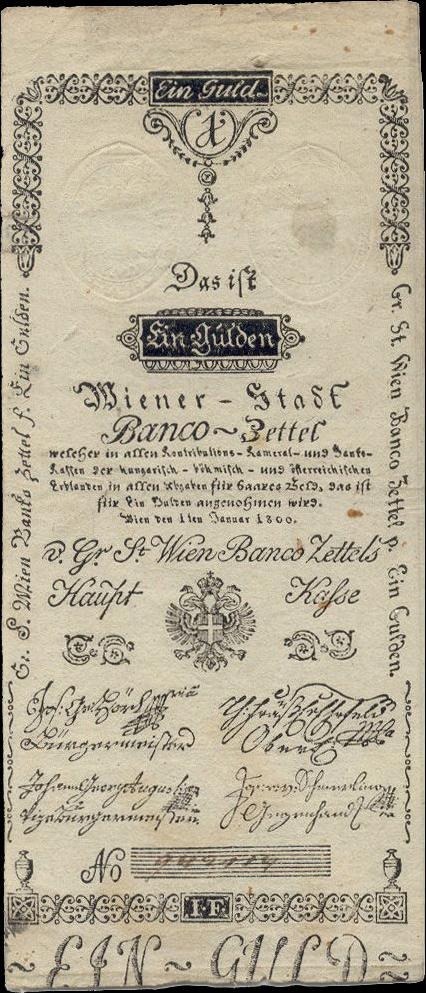 Ein Guld.
1
Das ist
Ein Gulden
Wiener - Stadt
Banco ~ Zettel
welcher in allen Kontributions- Kameral- und Banko-
Kassen der hungarisch - böhmisch - und österreichischen
Erblanden in allen Abgaben für baares Geld, das ist
für Ein Gulden angenohmen wird.
Wien den 1ten Januar 1800.
v. Gr. St. Wien Banco Zettels
Haupt Kasse
Gr. S. Wien Banko Zettel f. Ein Gulden.
Gr. St. Wien Banco Zettel p. Ein Gulden.
Bürgermeister
Johann Georg
Vizebürgermeister
No
1 F
~ EIN ~ GULD ~